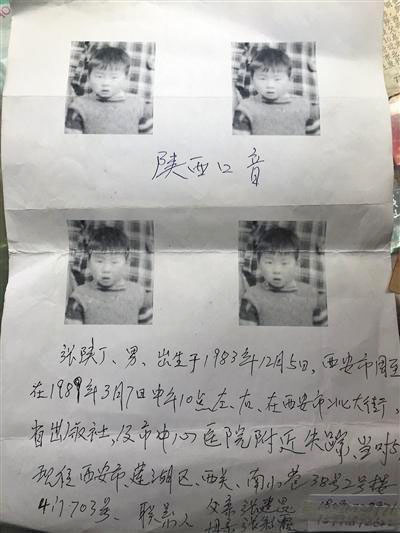 陕西口音
张陕丁、男、出生于1983年12月5日、西安市周至
在1989年3月7日中午10点左、右、在西安市北大街,
省出版社,及市中心医院附近失踪,当时5
现住西安市莲湖区、西关、南小巷38号2号楼
4门703号、联系人 父亲 张建
母亲 张